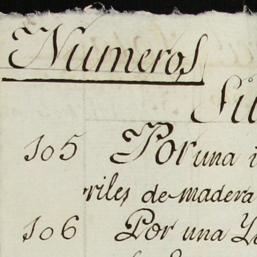 Numeros
105 Por una
riles de madera
106 Por una